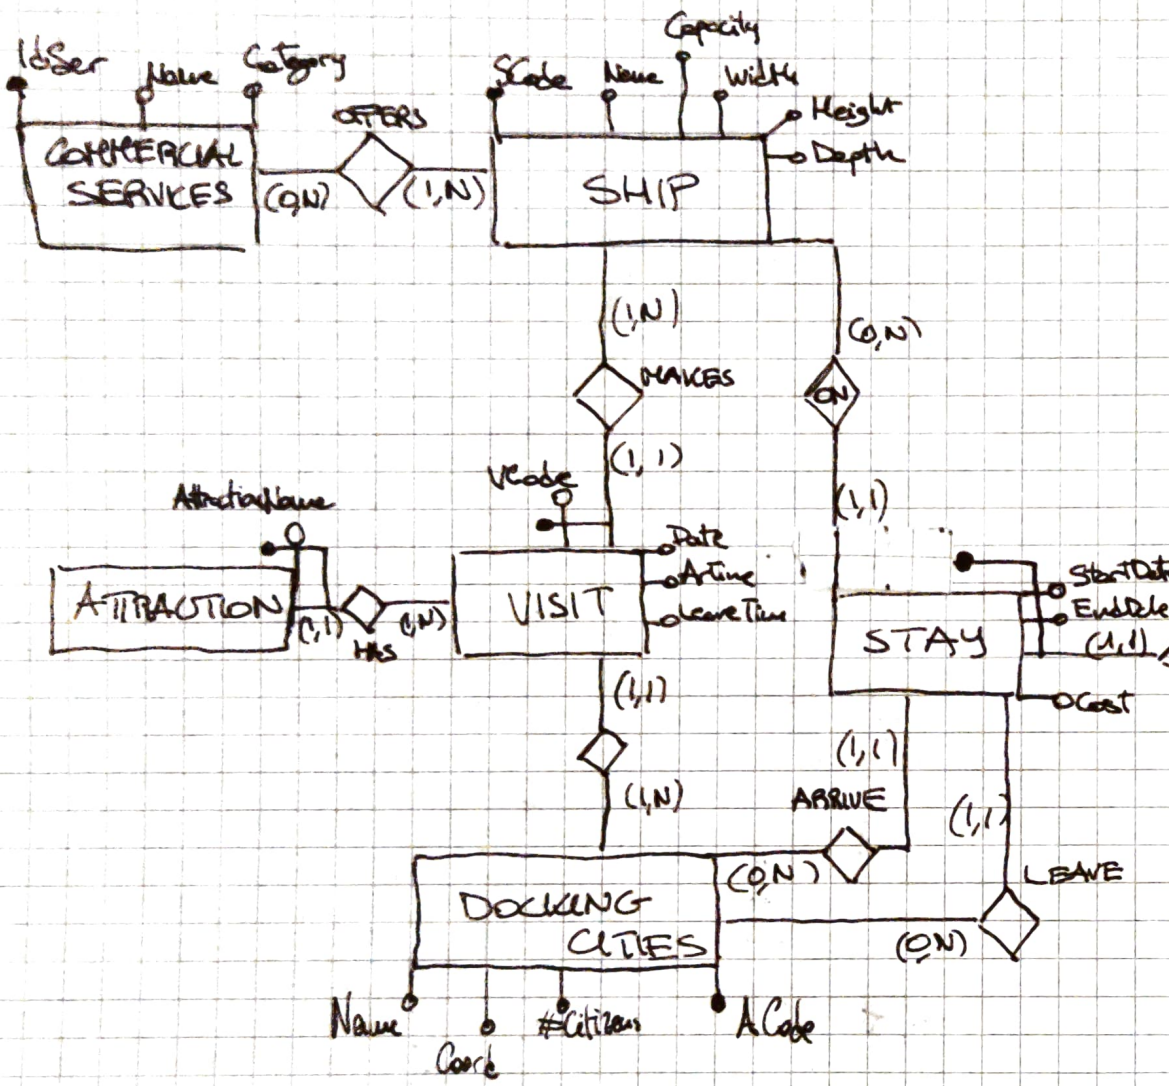 IdSer
Name
Category
COMMERCIAL
SERVICES
(0,N)
OFFERS
(1,N)
SCode
Name
Capacity
Width
Height
Depth
SHIP
(1,N)
MAKES
(1,1)
(0,N)
ON
(1,1)
AttractionName
ATTRACTION
(1,1)
HAS
(1,N)
VCode
VISIT
Date
ArTime
LeaveTime
STAY
StartDate
EndDate
(1,1)
Cost
(1,1)
(1,N)
(1,1)
ARRIVE
(0,N)
(1,1)
LEAVE
(0,N)
DOCKING
CITIES
Name
#Citizens
ACode